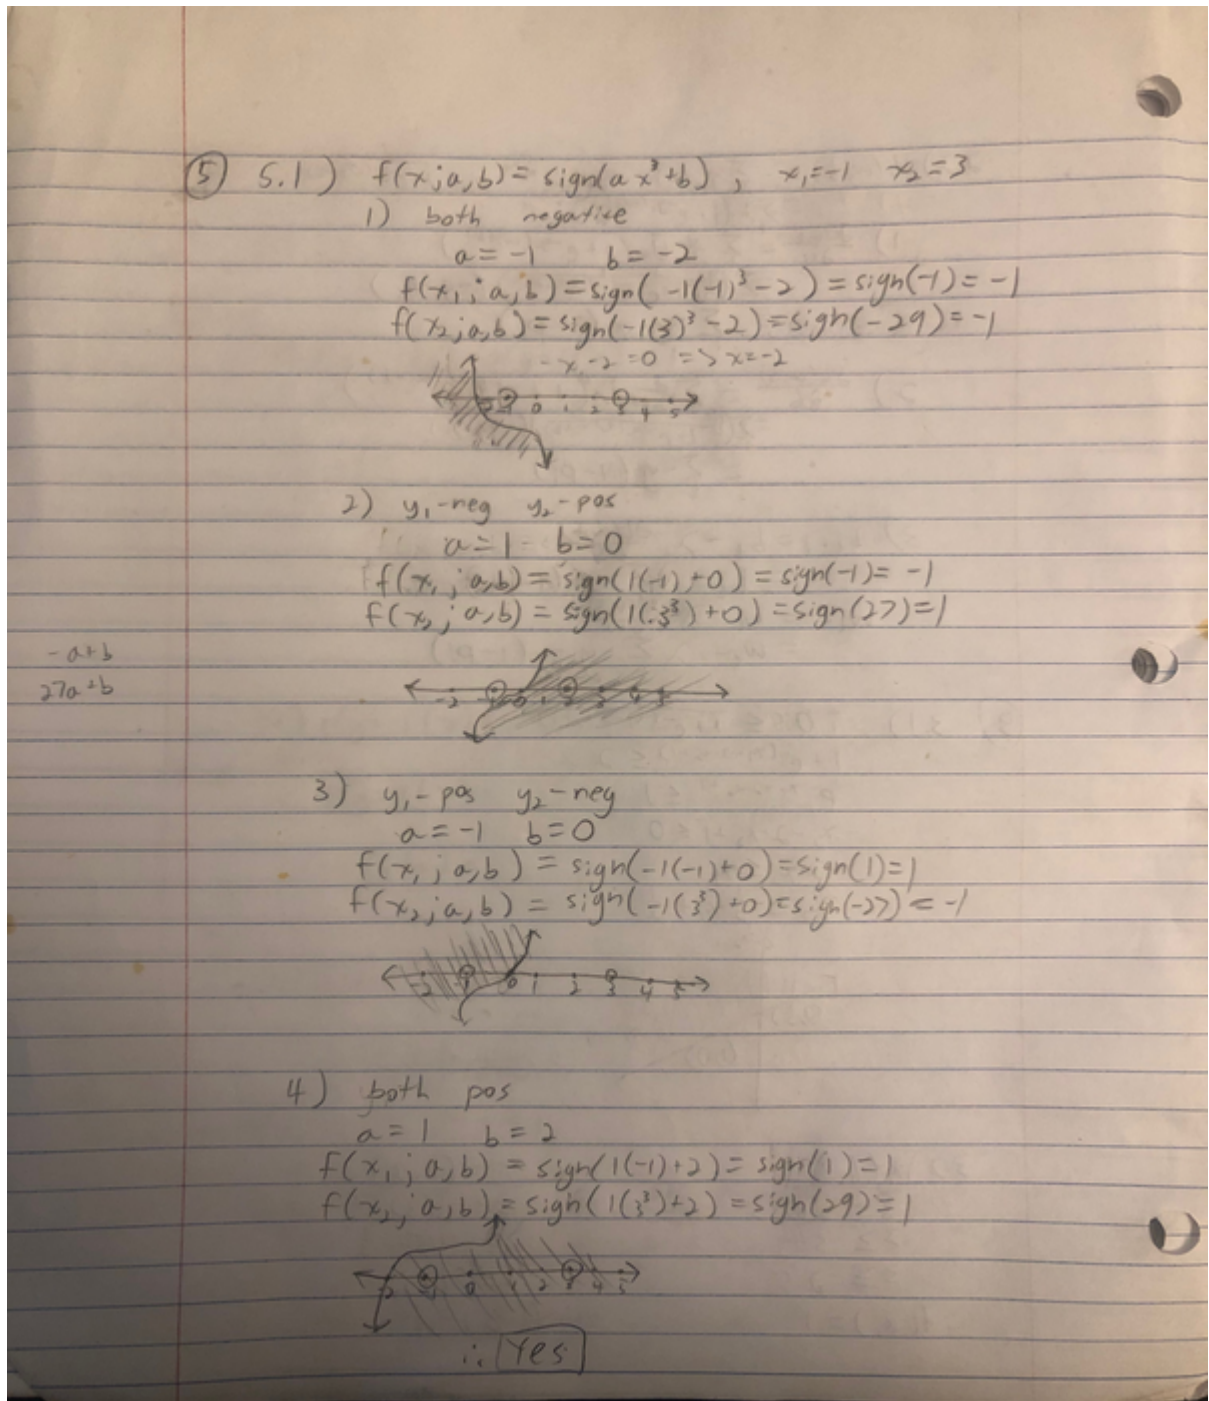 ⑤ 5.1) f(x;a,b) = sign(ax³+b), x₁=-1 x₂=3
1) both negative
a = -1 b = -2
f(x₁;a,b) = sign(-1(-1)³-2) = sign(-1) = -1
f(x₂;a,b) = sign(-1(3)³-2) = sign(-29) = -1
-x-2=0 => x=-2
0 1 2 3 4 5
2) y₁-neg y₂-pos
a = 1 b = 0
f(x₁;a,b) = sign(1(-1)+0) = sign(-1) = -1
f(x₂;a,b) = sign(1(3³)+0) = sign(27) = 1
-a+b
27a+b
-2 0 1 2 3 4 5
3) y₁-pos y₂-neg
a = -1 b = 0
f(x₁;a,b) = sign(-1(-1)+0) = sign(1) = 1
f(x₂;a,b) = sign(-1(3³)+0) = sign(-27) = -1
-2 -1 0 1 2 3 4 5
4) both pos
a = 1 b = 2
f(x₁;a,b) = sign(1(-1)+2) = sign(1) = 1
f(x₂;a,b) = sign(1(3³)+2) = sign(29) = 1
-2 -1 0 1 2 3 4 5
∴ Yes